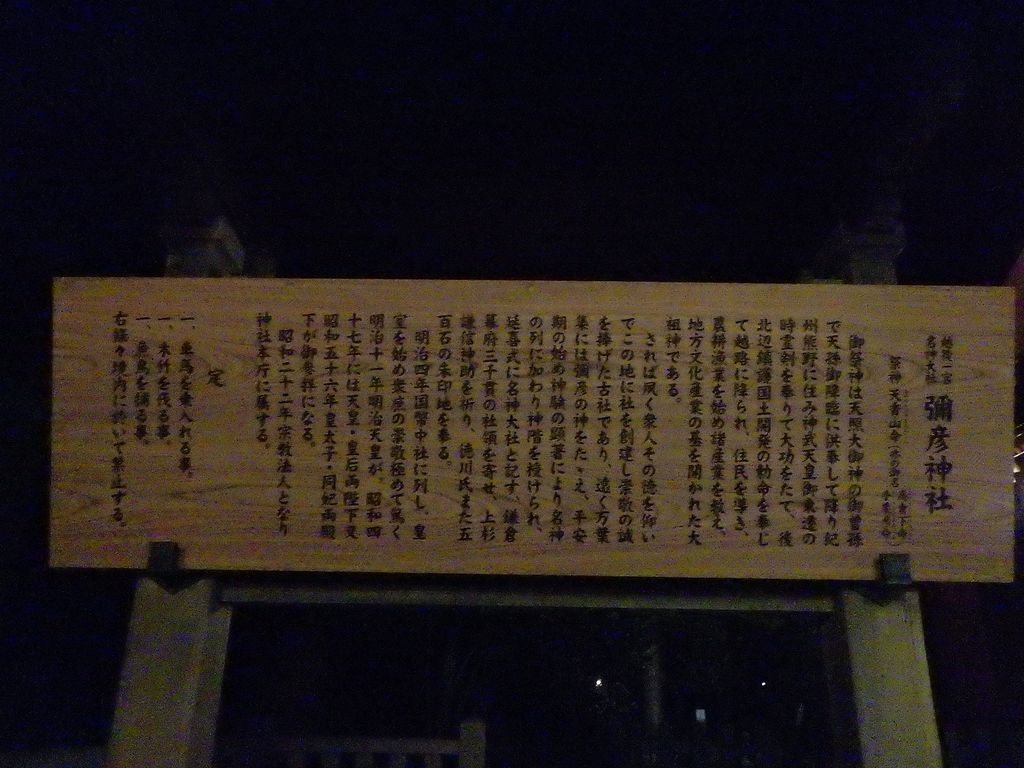 越後一宮
名神大社
彌彦神社
祭神 天香山命
御祭神は天照大御神の御曽孫
で天孫御降臨に供奉して降り紀
州熊野に住み神武天皇御東遷の
時霊剣を奉りて大功をたて、後
北辺鎮護国土開発の勅命を奉じ
て越路に降られ、住民を導き、
農耕漁業を始め諸産業を教え、
地方文化産業の基を開かれた大
祖神である。
されば夙く衆人その徳を仰い
でこの地に社を創建し崇敬の誠
を捧げた古社であり、遠く万葉
集には彌彦の神をたゝえ、平安
期の始め神験の顕著により名神
の列に加わり神階を授けられ、
延喜式に名神大社と記す。鎌倉
幕府三千貫の社領を寄せ、上杉
謙信神助を祈り、徳川氏また五
百石の朱印地を奉る。
明治四年国幣中社に列し、皇
室を始め衆庶の崇敬極めて篤く
明治十一年明治天皇が、昭和四
十七年には天皇・皇后両陛下又
昭和五十六年皇太子・同妃両殿
下が御参拝になる。
昭和二十二年宗教法人となり
神社本庁に属する。
定
一、車馬を乗入れる事。
一、木竹を伐る事。
一、魚鳥を捕る事。
右條々境内に於いて禁止する。